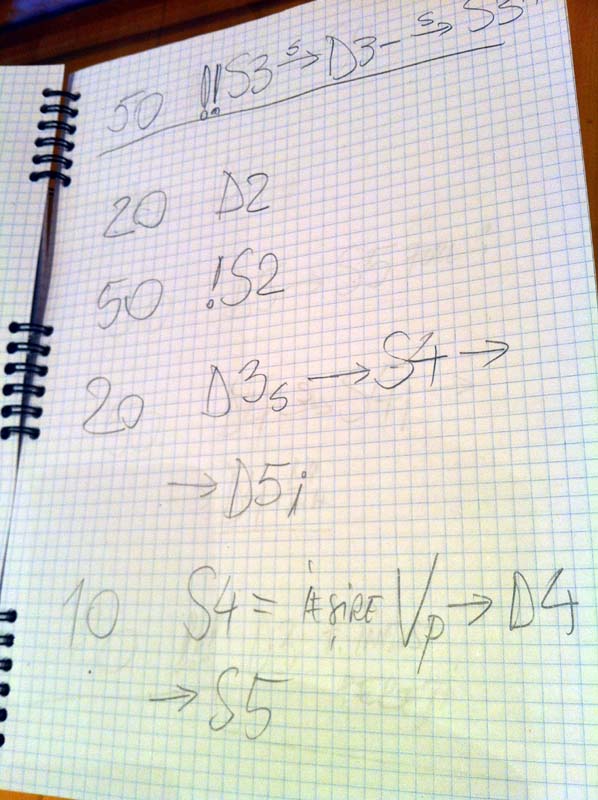 50 !!S3 s→ D3 -s→ S3
20 D2
50 !S2
20 D3s → S4 →
→ D5i
10 S4 = IEȘIRE Vp → D4
→ S5